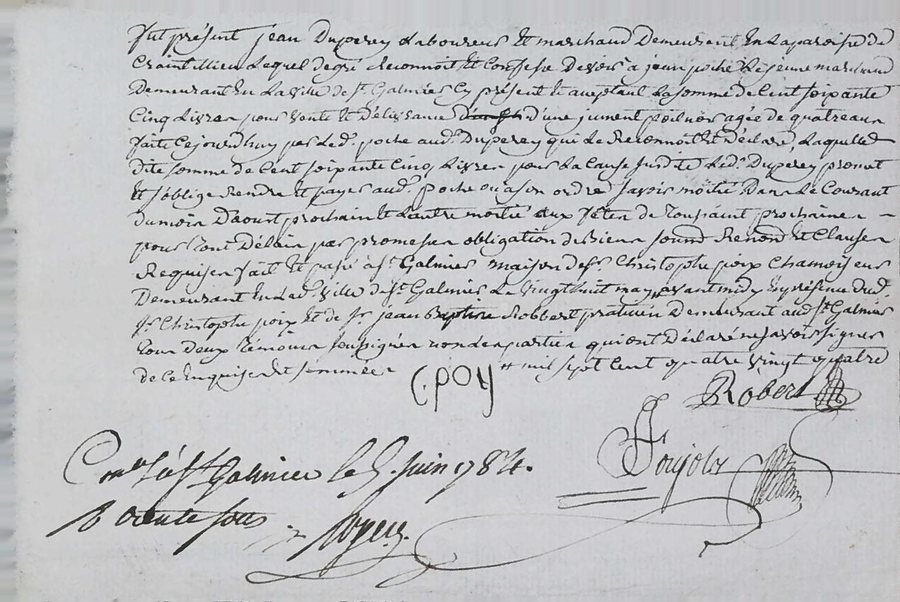 fut présent jean Duperey Laboureur Et marchand Demeurant En La paroisse de
Craintillieu Lequel de gré Reconnoit Et Confesse Devoir a jean poche Le jeune marchand
Demeurant En La ville de St. Galmier Cy présent Et aceptant La somme de Cent soixante
Cinq Livres pour vente Et Délivrance d'une jument poil noir agée de quatre ans
faite Cejourd'huy par Led. poche aud. Duperey qui Le Reconnoit Et Déclare, Laquelle
dite somme de Cent soixante Cinq Livres pour La Cause susdite Led. Duperey promet
Et s'oblige Rendre Et payer aud. poche ou a son ordre savoir moitié Dans Le Courant
du mois D'aoust prochain Et L'autre moitié aux fêtes de Toussaint prochaines
pour tout Délais par promesses obligation de Biens soumd. Renond. Et Clauses
Requises fait Et passé à St. Galmier maison de Sr. Christophe poix Chamoiseur
Demeurant En Lad. ville de St. Galmier Le vingt huit may avant midy En présence dud.
Sr. Christophe poix Et de Sr. jean Baptiste Robbert praticien Demeurant aud. St. Galmier
tous deux témoins soussignés non les parties qui ont Déclaré ne savoir signer
de ce Enquises Et sommées
mil sept Cent quatre vingt quatre
C poy
Robert
Ponjoly
Conlé à St Galmier le 5. juin 1784.
R trente sols
Royer